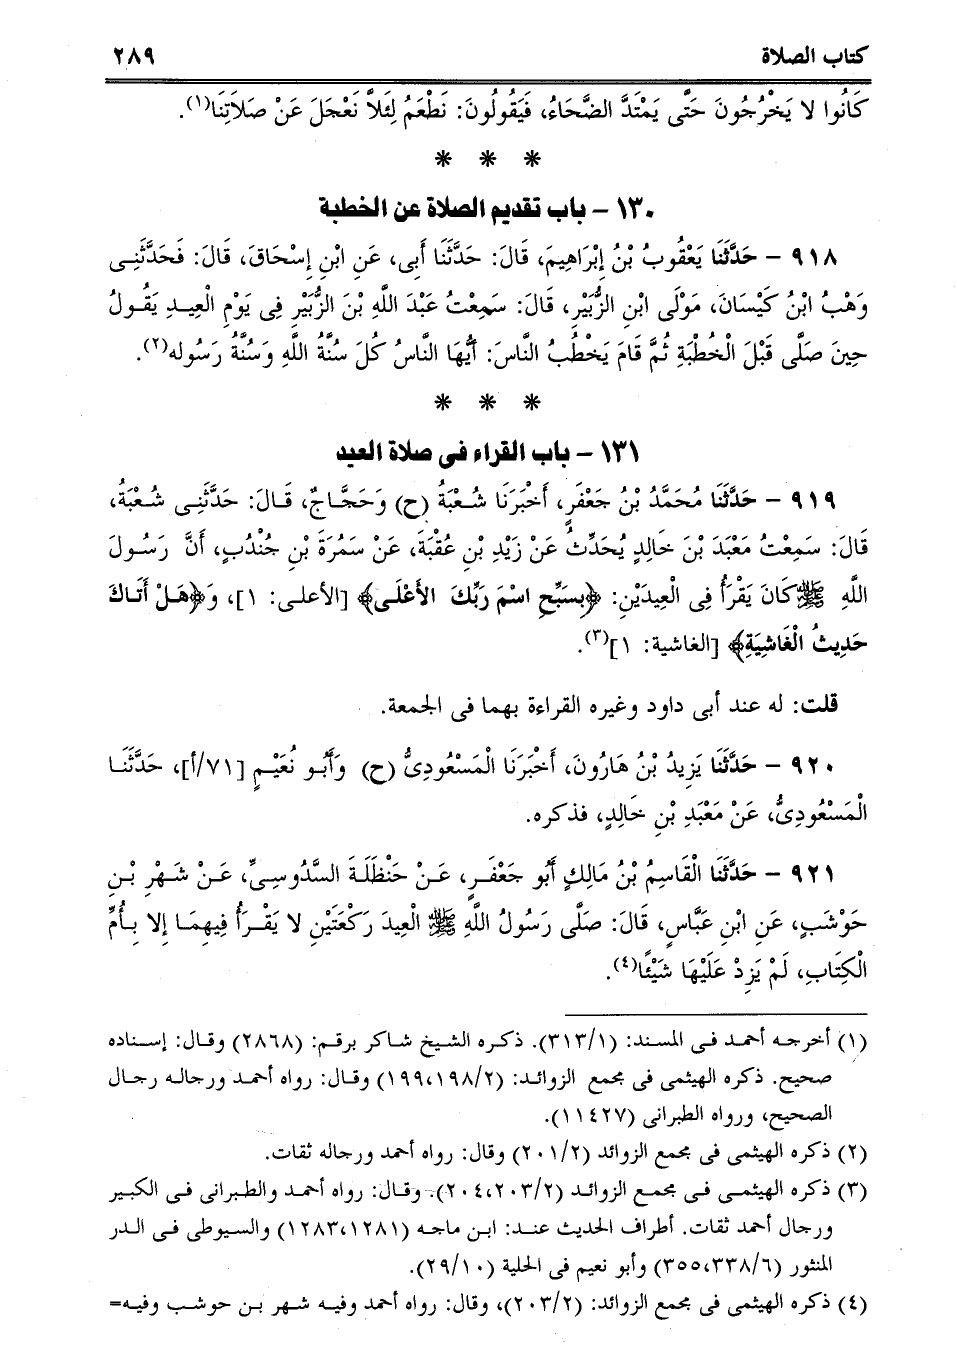 كتاب الصلاة ٢٨٩
كَانُوا لا يَخْرُجُونَ حَتَّى يَمْتَدَّ الضَّحَاءُ، فَيَقُولُونَ: نَطْعَمُ لِئَلاَّ نَعْجَلَ عَنْ صَلاَتِنَا(١).
* * *
١٣٠ - باب تقديم الصلاة عن الخطبة
٩١٨ - حَدَّثَنَا يَعْقُوبُ بْنُ إِبْرَاهِيمَ، قَالَ: حَدَّثَنَا أَبِى، عَنِ ابْنِ إِسْحَاقَ، قَالَ: فَحَدَّثَنِى
وَهْبُ ابْنُ كَيْسَانَ، مَوْلَى ابْنِ الزُّبَيْرِ، قَالَ: سَمِعْتُ عَبْدَ اللَّهِ بْنَ الزُّبَيْرِ فِى يَوْمِ الْعِيدِ يَقُولُ
حِينَ صَلَّى قَبْلَ الْخُطْبَةِ ثُمَّ قَامَ يَخْطُبُ النَّاسَ: أَيُّهَا النَّاسُ كُلَ سُنَّةُ اللَّهِ وَسُنَّةُ رَسُولِه(٢).
* * *
١٣١ - باب القراء فى صلاة العيد
٩١٩ - حَدَّثَنَا مُحَمَّدُ بْنُ جَعْفَرٍ، أَخْبَرَنَا شُعْبَةُ (ح) وَحَجَّاجٌ، قَالَ: حَدَّثَنِى شُعْبَةُ،
قَالَ: سَمِعْتُ مَعْبَدَ بْنَ خَالِدٍ يُحَدِّثُ عَنْ زَيْدِ بْنِ عُقْبَةَ، عَنْ سَمُرَةَ بْنِ جُنْدُبٍ، أَنَّ رَسُولَ
اللَّهِ ﷺ كَانَ يَقْرَأُ فِى الْعِيدَيْنِ: ﴿بِسَبِّحِ اسْمَ رَبِّكَ الأَعْلَى﴾ [الأعلى: ١]، وَ﴿هَلْ أَتَاكَ
حَدِيثُ الْغَاشِيَةِ﴾ [الغاشية: ١](٣).
قلت: له عند أبى داود وغيره القراءة بهما فى الجمعة.
٩٢٠ - حَدَّثَنَا يَزِيدُ بْنُ هَارُونَ، أَخْبَرَنَا الْمَسْعُودِىُّ (ح) وَأَبُو نُعَيْمٍ [٧١/أ]، حَدَّثَنَا
الْمَسْعُودِىُّ، عَنْ مَعْبَدِ بْنِ خَالِدٍ، فذكره.
٩٢١ - حَدَّثَنَا الْقَاسِمُ بْنُ مَالِكٍ أَبُو جَعْفَرٍ، عَنْ حَنْظَلَةَ السَّدُوسِىِّ، عَنْ شَهْرِ بْنِ
حَوْشَبٍ، عَنِ ابْنِ عَبَّاسٍ، قَالَ: صَلَّى رَسُولُ اللَّهِ ﷺ الْعِيدَ رَكْعَتَيْنِ لا يَقْرَأُ فِيهِمَا إِلا بِأُمِّ
الْكِتَابِ، لَمْ يَزِدْ عَلَيْهَا شَيْئًا(٤).
(١) أخرجه أحمد فى المسند: (٣١٣/١). ذكره الشيخ شاكر برقم: (٢٨٦٨) وقال: إسناده
صحيح. ذكره الهيثمى فى مجمع الزوائد: (١٩٩،١٩٨/٢) وقال: رواه أحمد ورجاله رجال
الصحيح، ورواه الطبرانى (١١٤٢٧).
(٢) ذكره الهيثمى فى مجمع الزوائد (٢٠١/٢) وقال: رواه أحمد ورجاله ثقات.
(٣) ذكره الهيثمى فى مجمع الزوائد (٢٠٤،٢٠٣/٢). وقال: رواه أحمد والطبرانى فى الكبير
ورجال أحمد ثقات. أطراف الحديث عند: ابن ماجه (١٢٨٣،١٢٨١) والسيوطى فى الدر
المنثور (٣٥٥،٣٣٨/٦) وأبو نعيم فى الحلية (٢٩/١٠).
(٤) ذكره الهيثمى فى مجمع الزوائد: (٢٠٣/٢)، وقال: رواه أحمد وفيه شهر بن حوشب وفيه=